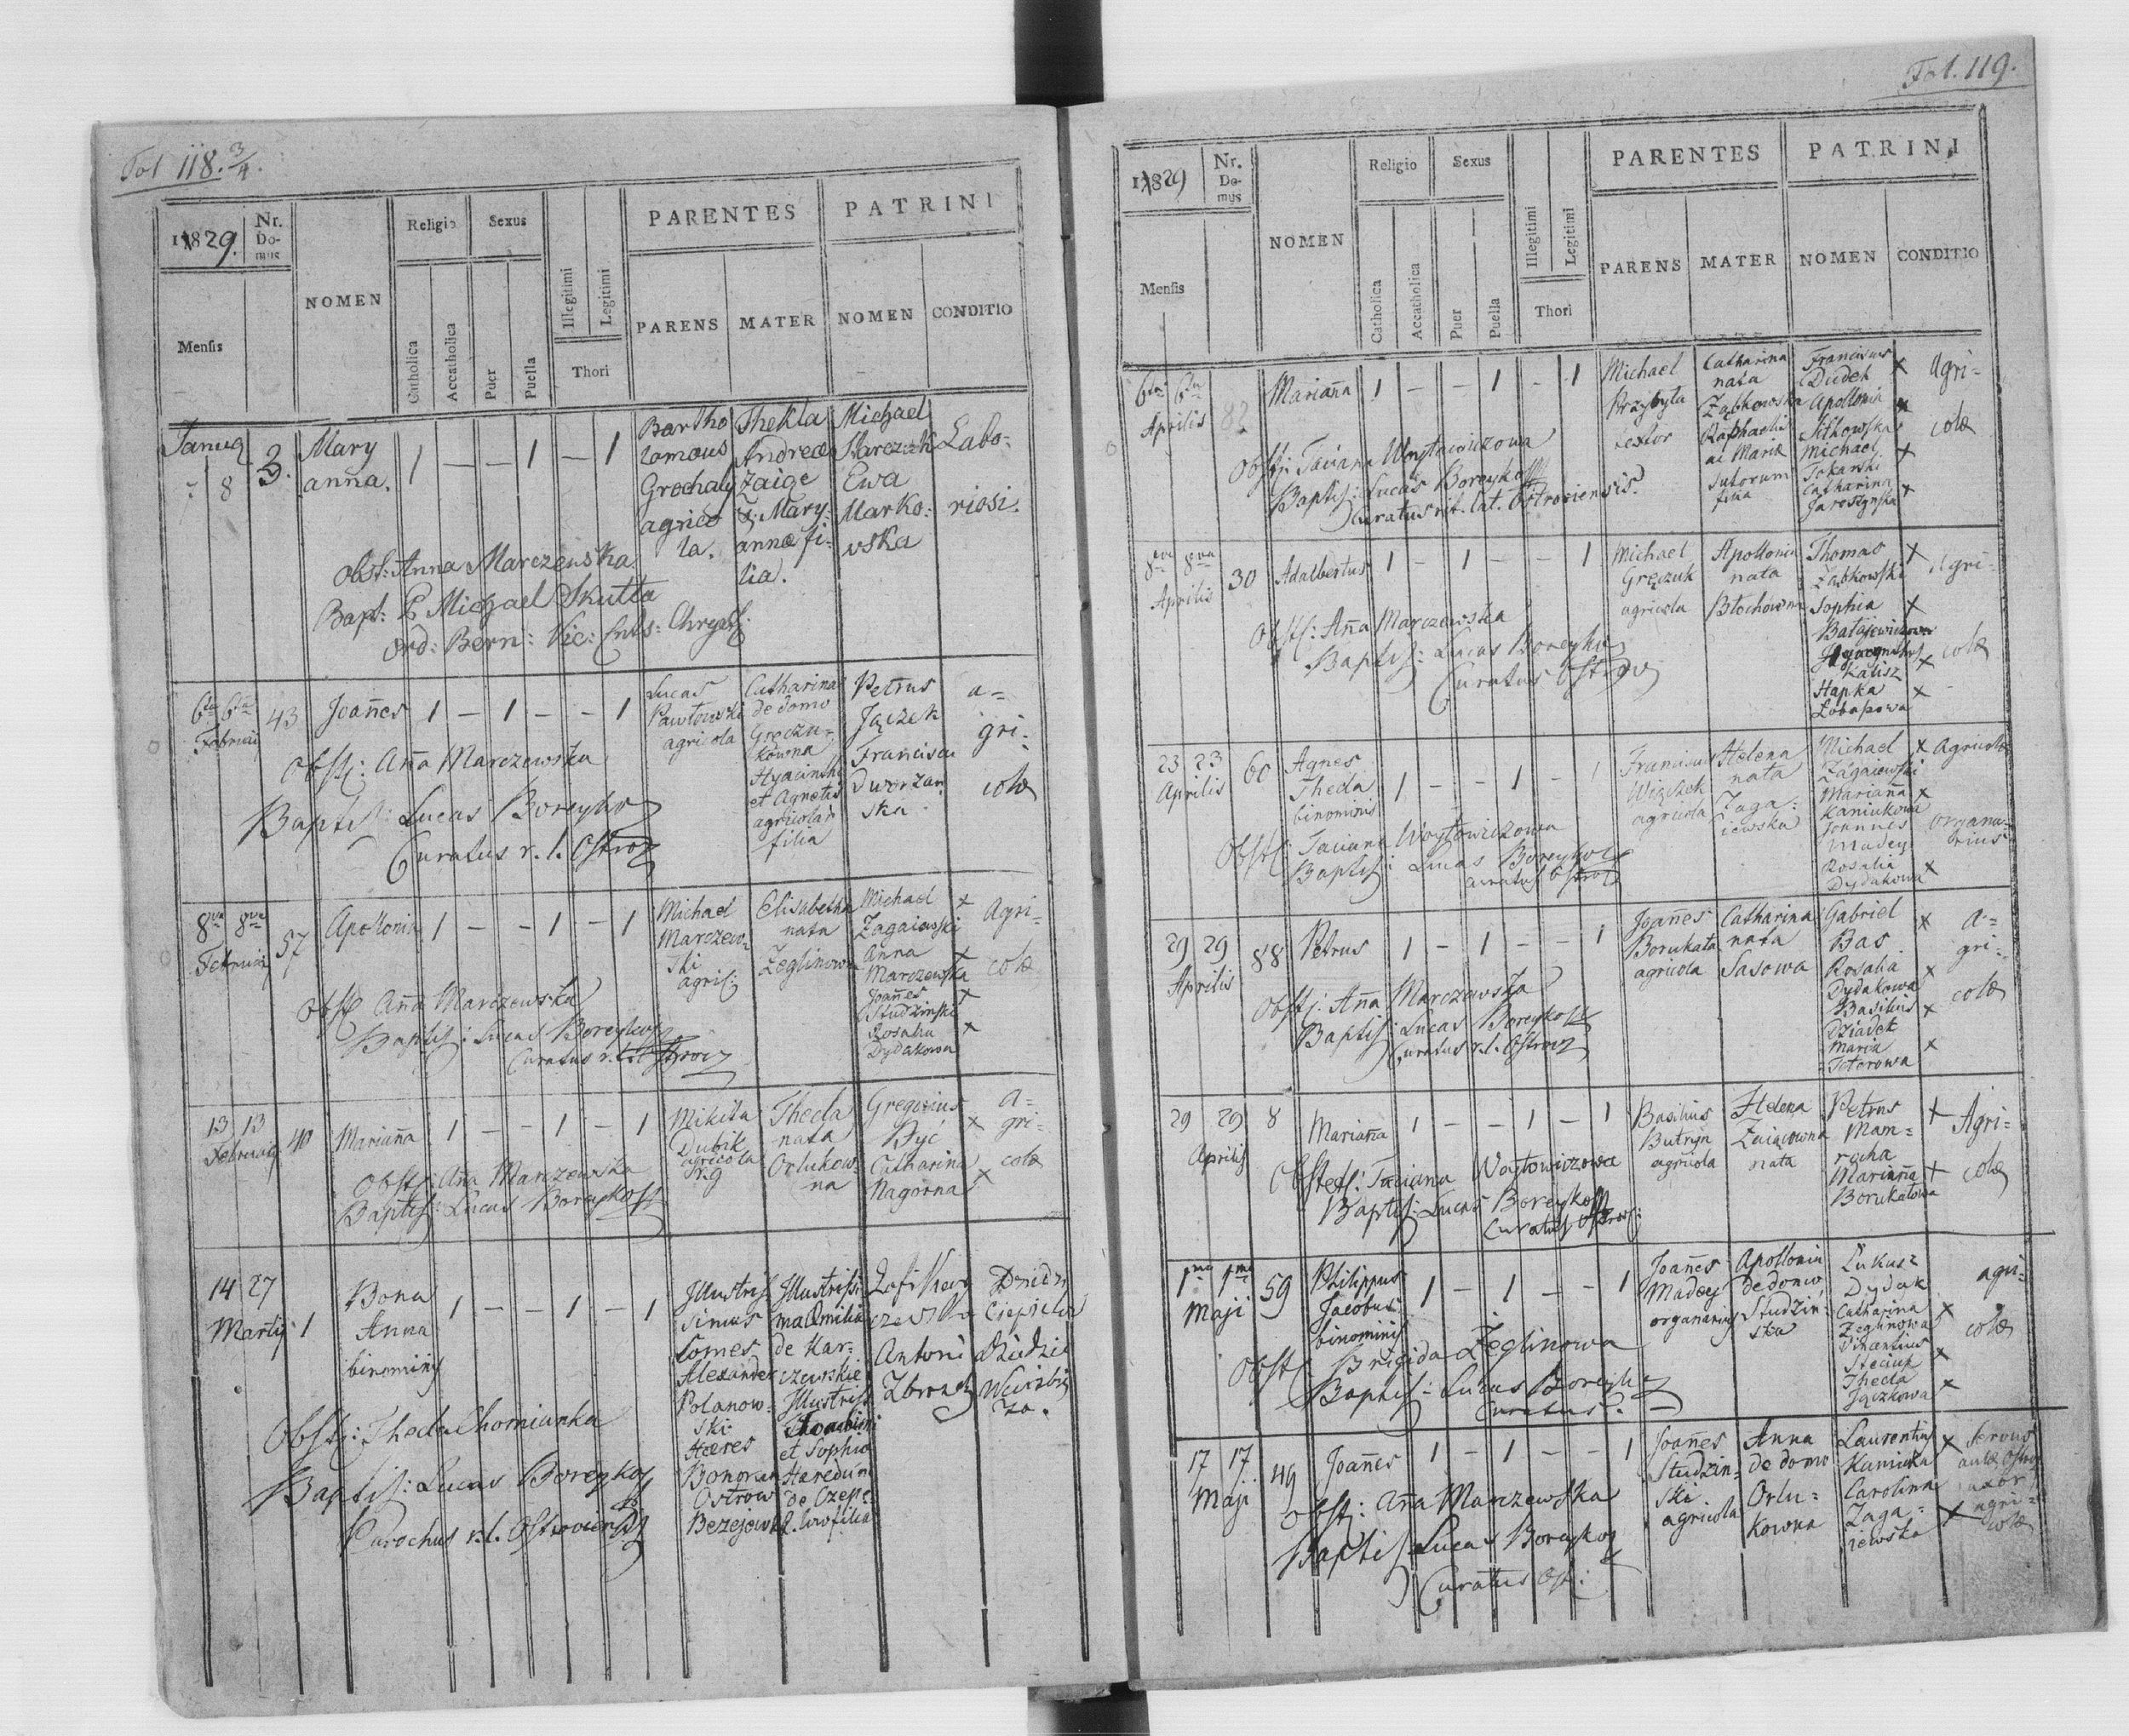 Fol 118. 3/4.
1829.
Nr. Do-mus
NOMEN
Religio
Sexus
PARENTES
PATRINI
Mensis
Catholica
Accatholica
Puer
Puella
Illegitimi
Legitimi
Thori
PARENS
MATER
NOMEN
CONDITIO
Janua
7 8
3.
Mary
anna.
1 — — 1 — 1
Bartho
lomæus
Grochaly
agrico
la.
Thekla
Andreæ
Zaige
& Mary
annæ fi-
lia.
Michael
Starczuk
Ewa
Marko:
wska
Labo-
riosi.
Obst: Anna Marczewska
Bapt: P Michael Skutta
Ord: Bern: Vic:
6ta 6ta
Februarij
43
Joañes
1 — 1 — — 1
Lucas
Pawłowski
agricola
Catharina
de domo
Greczu-
kowna
Hyacinthi
et Agnetis
agricolar
filia
Petrus
Jączek
Francisca
Dworzan
ska
a=
gri-
colæ
Obst: Aña Marczewska
Baptis: Lucas Boreyko
Curatus r. l. Ostrov
8va 8va
Februarij
57
Apollonia
1 — — 1 — 1
Michael
Marczew-
ski
agric:
Elisabetha
nata
Zeglinowa
Michael x
Zagaiewski
Anna x
Marczewska
Joañes x
Studzinski
Rosalia x
Dydakowa
Agri-
colæ
Obst Aña Marczewska
Baptis: Lucas Boreyko
Curatus r. l. Ostrov
13 13
Februarij
40
Mariaña
1 — — 1 — 1
Mikita
Dubik
agricola
Theda
nata
Orlukow-
na
Gregorius
Dyć x
Catharina
Nagorna x
a=
gri-
colæ
Obst: Aña Marczewska
Baptis: Lucas Boreyko
14 27
Martij 1
Bona
Anna
binominis
1 — — 1 — 1
Illustris
simus
Comes
Alexander
Polanow-
ski
Hæres
Bonorum
Ostrow
Illustrissi
ma
de Kar-
czewskie
Illustris
et Sophiæ
Hæredum
filia
Antoni
Obst: Theda Chomianka
Baptis: Lucas Boreyko
Parochus r. l. Ostroviensis
Fol. 119.
1829
Nr. Do-mus
NOMEN
Religio
Sexus
PARENTES
PATRINI
Mensis
Catholica
Accatholica
Puer
Puella
Illegitimi
Legitimi
Thori
PARENS
MATER
NOMEN
CONDITIO
6ta 6ta
Aprilis
82
Mariaña
1 — — 1 — 1
Michael
Przybyła
textor
Catharina
nata
Ząbkowska
Raphaelis
ac Mariæ
sutorum
filia
Franciscus x
Dudek
Apollonia x
Sitkowska
Michael x
Tokarski
Catharina x
Jaroszynska
Agri-
colæ
Obst: Taciana Woytowiczowa
Baptis: Lucas Boreyko
Curatus rit. lat. Ostroviensis.
8va 8va
Aprilis
30
Adalbertus
1 — 1 — — 1
Michael
Gręczuk
agricola
Apollonia
nata
Błochowna
Thomas x
Ząbkowski
Sophia x
Batajewiczowa
Kalisz x
Hapka x
Agri-
colæ
Obst: Aña Marczewska
Baptis: Lucas Boreyko
Curatus Ostrov
23 23
Aprilis
60
Agnes
Theda
binominis
1 — — 1 — 1
Franciscus
Wiączek
agricola
Helena
nata
Zaga-
iewska
Michael x
Zagaiewski
Mariaña x
Kaniukowa
Joannes
Madey
Rosalia
Dydakowa x
Agricolæ
organa-
rius
Obst: Taciana Woytowiczowa
Baptis: Lucas Boreyko
curatus Ostrov
29 29
Aprilis
88
Petrus
1 — 1 — — 1
Joañes
Borukata
agricola
Catharina
nata
Sasowa
Gabriel x
Bas
Rosalia x
Dydakowa
Basilius x
Dziadek
Maria x
Teterowa
a=
gri-
colæ
Obst: Aña Marczewska
Baptis: Lucas Boreyko
Curatus r. l. Ostrov
29 29
Aprilis
8
Mariaña
1 — — 1 — 1
Basilius
Butryn
agricola
Helena
Zaiącowna
nata
Petrus x
Mam-
rocha
Mariaña x
Borukatowa
Agri-
colæ
Obstet: Taciana Woytowiczowa
Baptis: Lucas Boreyko
Curatus Ostrov:
1ma 1ma
Maji
59
Philippus
Jacobus
binominis
1 — 1 — — 1
Joañes
Madey
organarius
Apollonia
de domo
Studziń-
ska
Łukasz
Dydak
Catharina x
Zeglinowa
Steciuk x
Theda
Jączkowa x
agri-
colæ
Obst: Brigida Zeglinowa
Baptis: Lucas Boreyko
Curatus.
17 17
Maji
49
Joañes
1 — 1 — — 1
Joañes
Studzin-
ski
agricola
Anna
de domo
Orlu-
kowna
Laurentius x
Kaniuka
Carolina
Zaga-
iewska x
servus
agri-
colæ
Obst: Aña Marczewska
Baptis Lucas Boreyko
Curatus Ost: